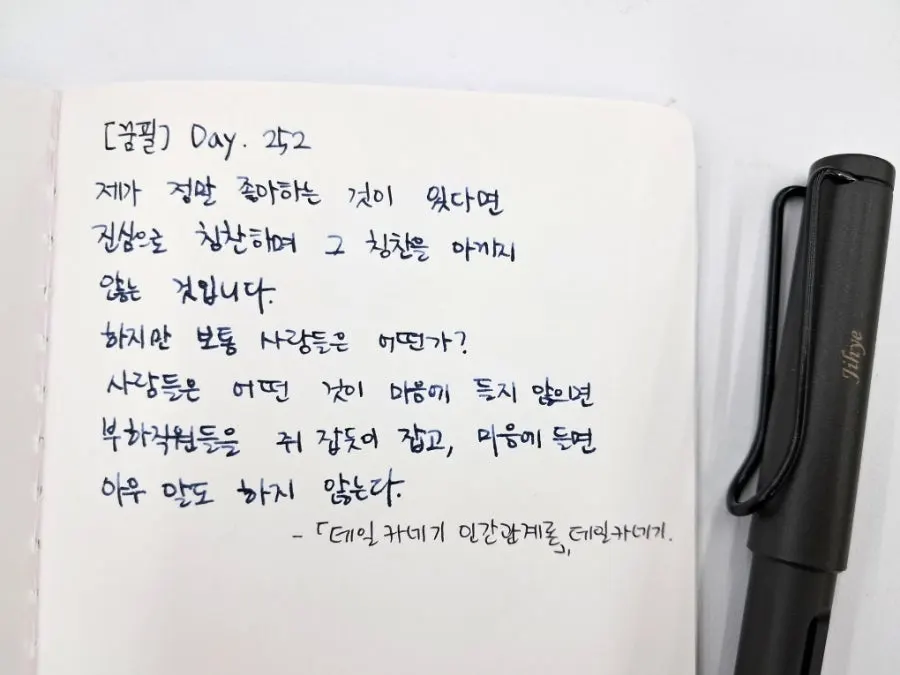 [꿈필] Day. 252
제가 정말 좋아하는 것이 있다면
진심으로 칭찬하며 그 칭찬을 아끼지
않는 것입니다.
하지만 보통 사람들은 어떤가?
사람들은 어떤 것이 마음에 들지 않으면
부하직원들을 쥐 잡듯이 잡고, 마음에 들면
아무 말도 하지 않는다.
-「데일 카네기 인간관계론」, 데일카네기.
Jihye